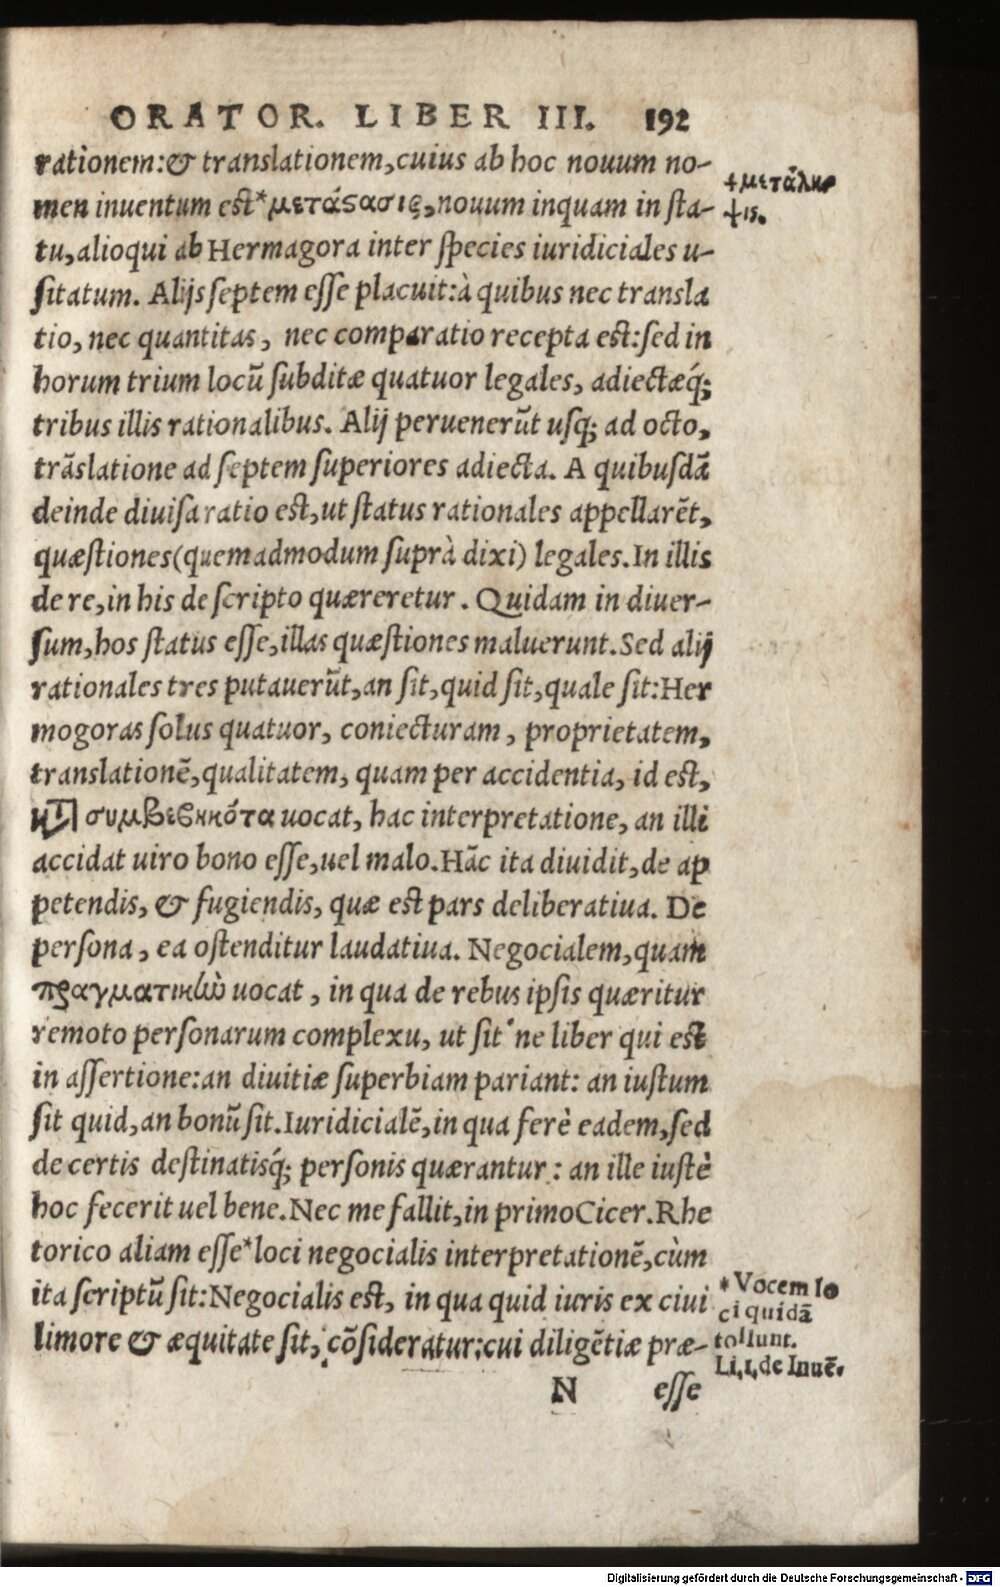 ORATOR. LIBER III. 192
rationem:& translationem,cuius ab hoc nouum no-
men inuentum est*μετάϛασις,nouum inquam in sta-
+μετάληψις.
tu,alioqui ab Hermagora inter species iuridiciales u-
sitatum. Alijs septem esse placuit:à quibus nec transla
tio, nec quantitas, nec comparatio recepta est:sed in
horum trium locū subditæ quatuor legales, adiectæq́;
tribus illis rationalibus. Alij peruenerūt usq; ad octo,
trãslatione ad septem superiores adiecta. A quibusdã
deinde diuisa ratio est,ut status rationales appellarẽt,
quæstiones(quemadmodum suprà dixi) legales.In illis
de re,in his de scripto quæreretur. Quidam in diuer-
sum,hos status esse,illas quæstiones maluerunt.Sed alij
rationales tres putauerūt,an sit,quid sit,quale sit:Her
mogoras solus quatuor, coniecturam, proprietatem,
translationẽ,qualitatem, quam per accidentia, id est,
συμβεβηκότα uocat, hac interpretatione, an illi
accidat uiro bono esse,uel malo.Hãc ita diuidit,de ap
petendis, & fugiendis, quæ est pars deliberatiua. De
persona, ea ostenditur laudatiua. Negocialem,quam
πραγματικὴν uocat, in qua de rebus ipsis quæritur
remoto personarum complexu, ut sit'ne liber qui est
in assertione:an diuitiæ superbiam pariant: an iustum
sit quid,an bonū sit.Iuridicialẽ,in qua ferè eadem,sed
de certis destinatisq́; personis quærantur: an ille iustè
hoc fecerit uel bene.Nec me fallit,in primo Cicer.Rhe
torico aliam esse*loci negocialis interpretationẽ,cùm
ita scriptū sit:Negocialis est, in qua quid iuris ex ciui
limore & æquitate sit, cõsideratur:cui diligẽtiæ præ-
*Vocem lo
ci quidã
tollunt.
Li,1,de Inuẽ.
N esse
Digitalisierung gefördert durch die Deutsche Forschungsgemeinschaft - DFG